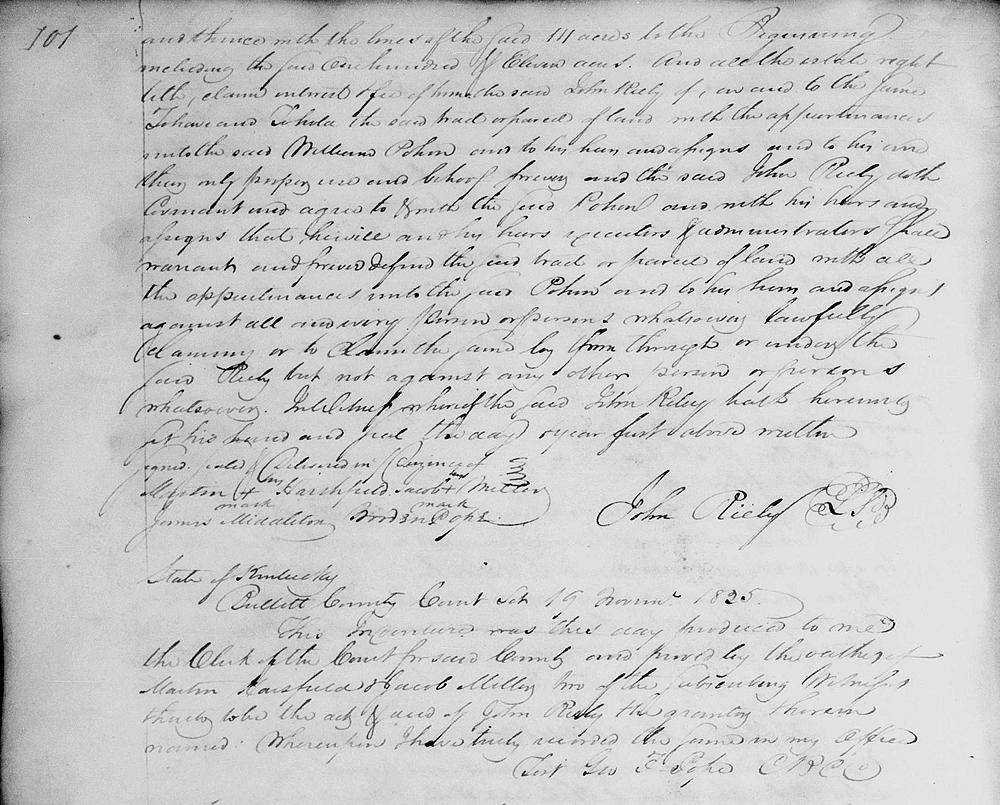 101
and thence with the lines of the said 111 acres to the Beginning
including the said One hundred & Eleven acres. And all the estate right
title, claim interest & fee of him the said John Riely of, on and to the same
To have and To hold the said tract or parcel of land with the appurtinances
unto the said William Pohon and to his heirs and assigns and to his and
their only proper use and behoof forever and the said John Riely doth
Covenant and agree to & with the said Pohon and with his heirs and
assigns that he will and his heirs executers & administrators shall
warrant and forever defend the said tract or parcel of land with all
the appurtinances unto the said Pohon and to his heirs and assigns
against all and every person or persons whatsoever lawfully
claiming or to claim the same by from through or under the
said Riely but not against any other person or persons
whatsoever. In Witness whereof the said John Riley hath hereunto
set his hand and seal the day & year first above written
signed sealed & Delivered in presence of
Martin his + mark Harshfield. Jacob his + mark Miller
James Middleton Pope
John Riely
State of Kentucky
Bullett County Court Sct 19 Novemr. 1825.
This Indenture was this day produced to me
the Clerk of the Court for said County and proved by the oathes of
Martin Harsfield & Jacob Miller two of the subscribing Witnesses
thereto to be the act & deed of John Riely the grantor therein
named. Whereupon I have truly recorded the same in my office
Test Geo F Pope C B C C